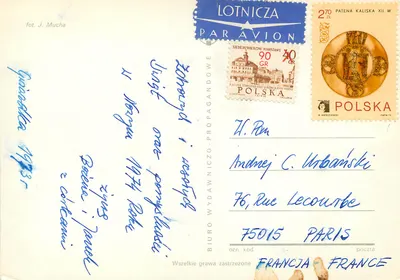 fot. J. Mucha
LOTNICZA
PAR AVION
90
GR
POLSKA
2.70 ZŁ
PATENA KALISKA XII W.
POLSKA
Gwiazdka 1973r
Zdrowych i wesołych
Świąt oraz pomyślności
w Nowym 1974 Roku
życzą
i Janek
z córkami
BIURO WYDAWNICZO PROPAGANDOWE
W. Pan
Andrzej C. Urbański
76, Rue Lecourbe
75015 PARIS
FRANCJA - FRANCE
Wszelkie prawa zastrzeżone